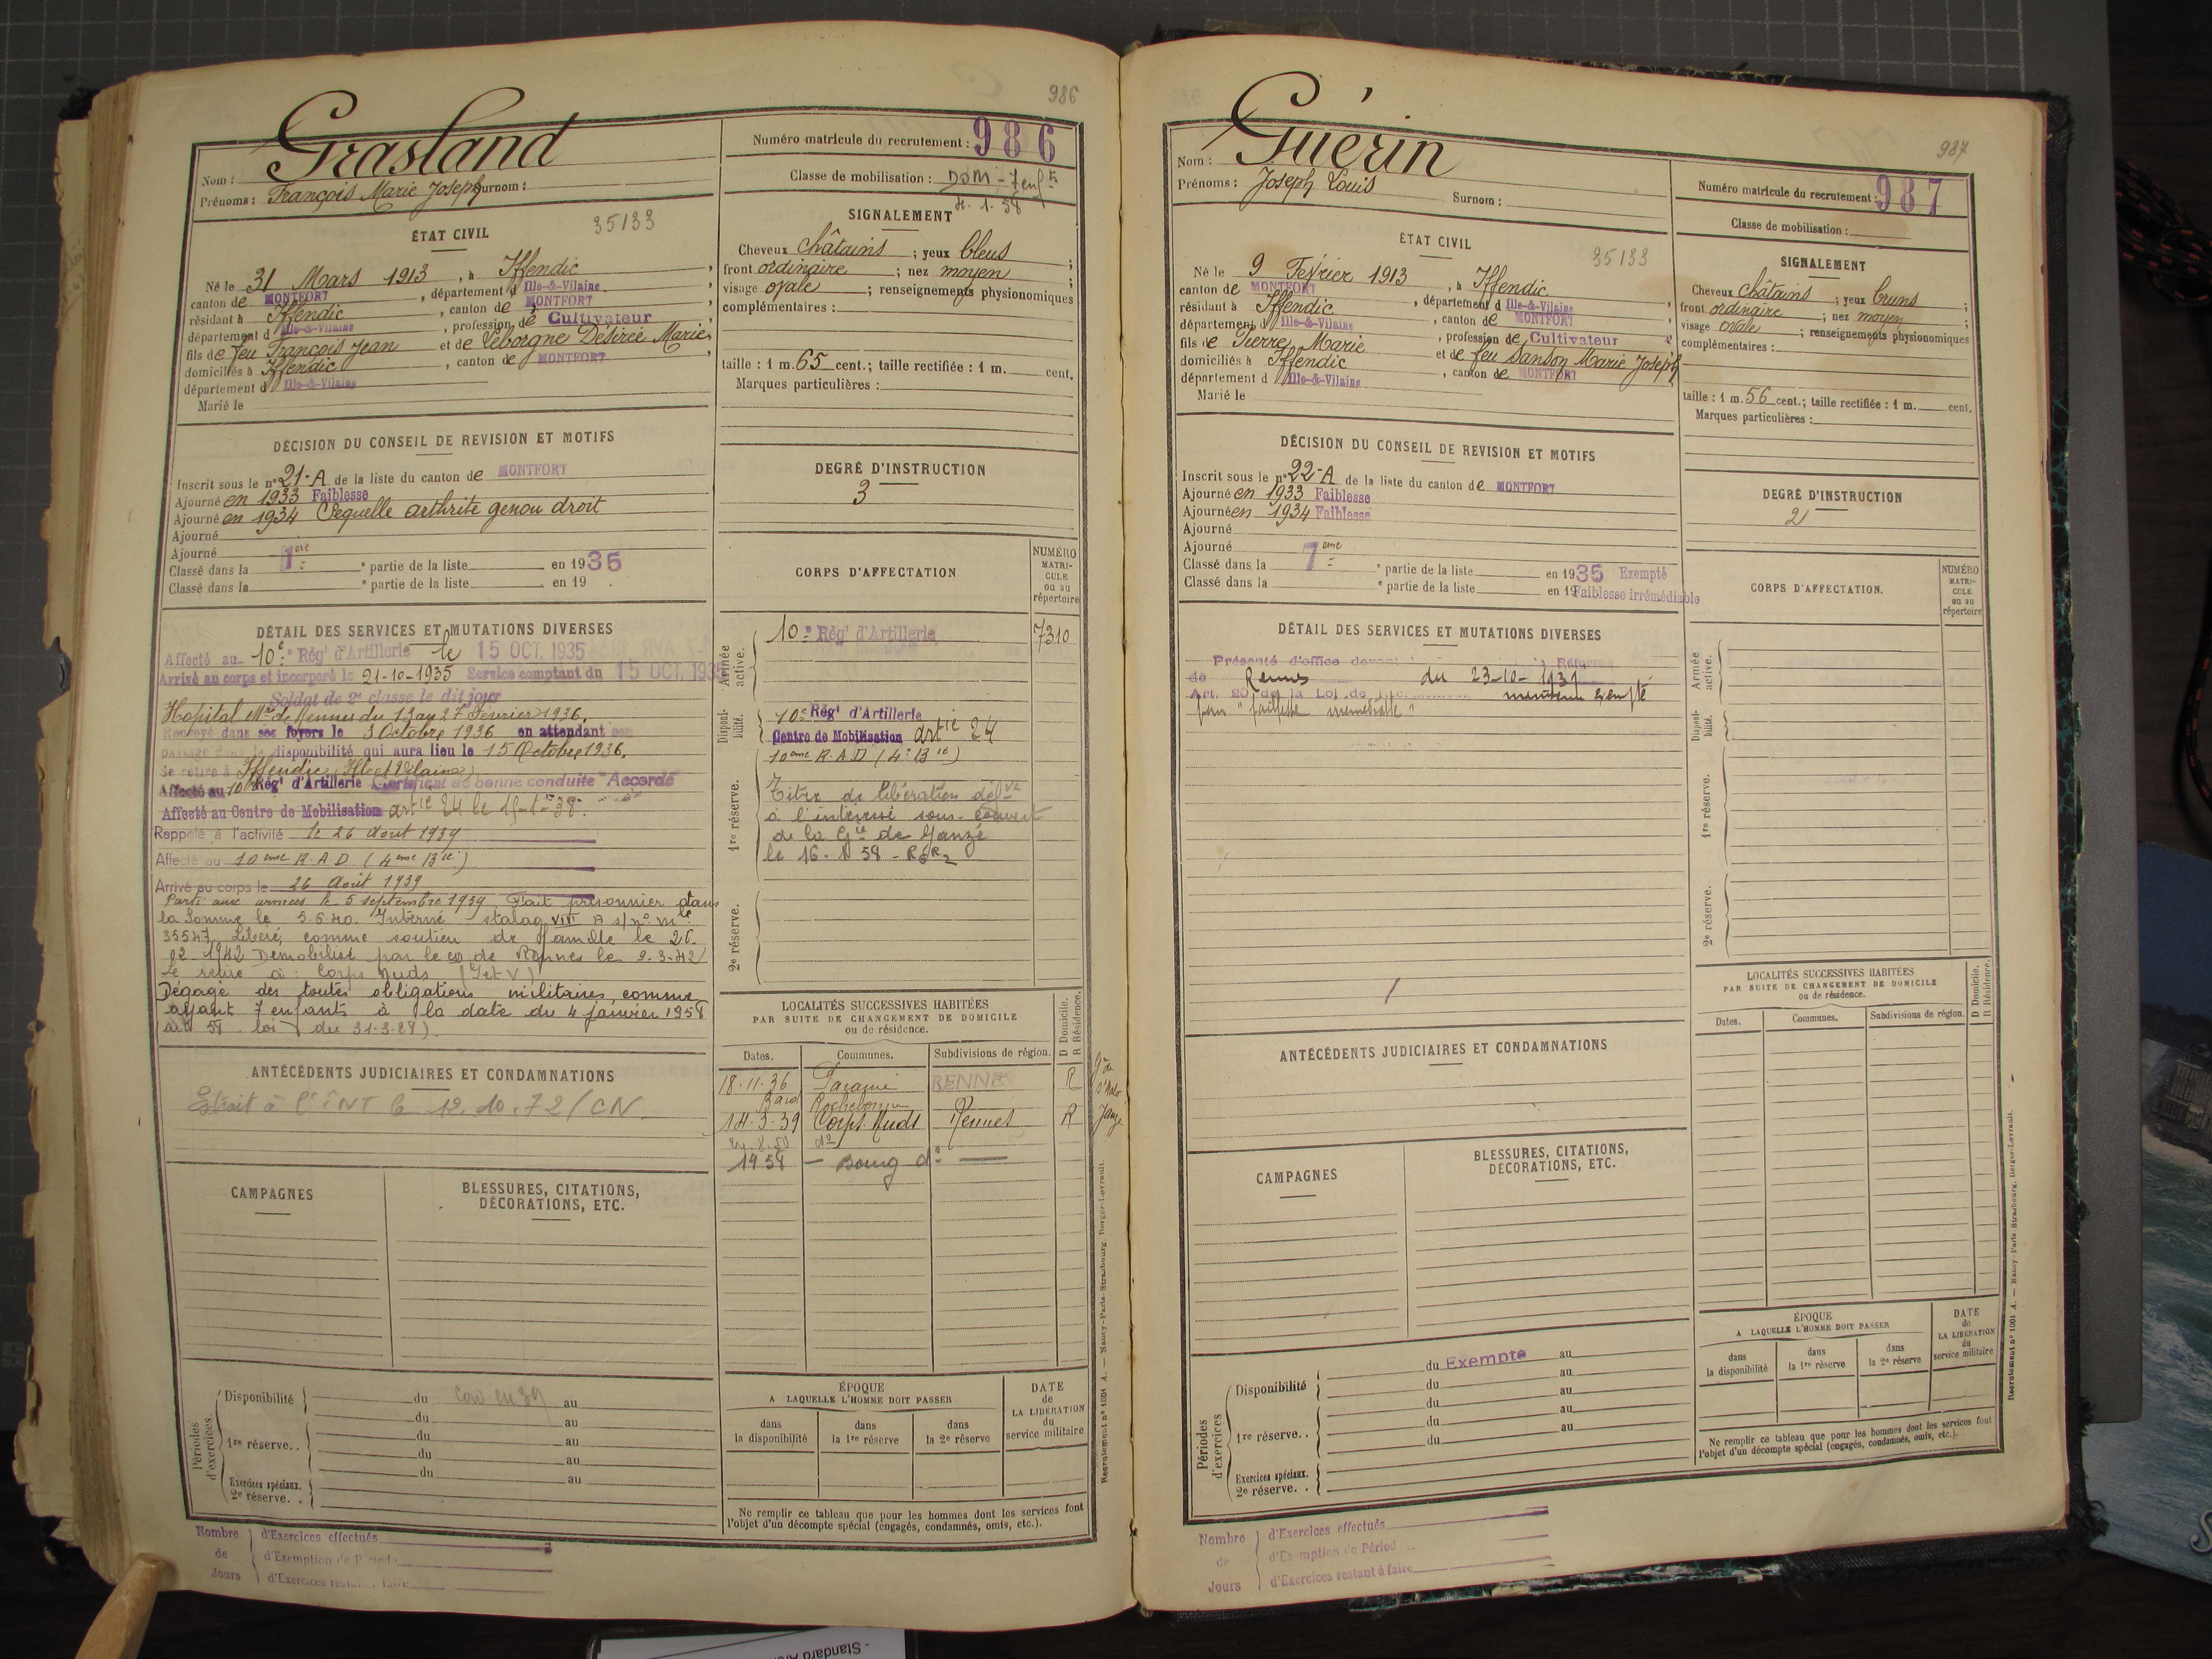 986
Grasland
Nom :
Prénoms : François Marie Joseph Surnom :
Numéro matricule du recrutement : 986
Classe de mobilisation : DOM - 7 enfts
4. 1. 58
ÉTAT CIVIL
35133
Né le 31 Mars 1913, à Iffendic,
canton de MONTFORT, département d Ille-&-Vilaine
résidant à Iffendic, canton de MONTFORT
département d Ille-&-Vilaine, profession de Cultivateur,
fils de feu François Jean et de Leborgne Désirée Marie,
domiciliés à Iffendic, canton de MONTFORT,
département d Ille-&-Vilaine
Marié le
SIGNALEMENT
Cheveux châtains ; yeux bleus ;
front ordinaire ; nez moyen ;
visage ovale ; renseignements physionomiques
complémentaires :
taille : 1 m. 65 cent.; taille rectifiée : 1 m. cent.
Marques particulières :
DÉCISION DU CONSEIL DE REVISION ET MOTIFS
Inscrit sous le n° 21-A de la liste du canton de MONTFORT
Ajourné en 1933 Faiblesse
Ajourné en 1934 Sequelle arthrite genou droit
Ajourné
Ajourné
Classé dans la 1ère partie de la liste en 1935
Classé dans la e partie de la liste en 19 .
DEGRÉ D'INSTRUCTION
3
DÉTAIL DES SERVICES ET MUTATIONS DIVERSES
Affecté au 10e Régt d'Artillerie le 15 OCT. 1935
Arrivé au corps et incorporé le 21-10-1935 Service comptant du 15 OCT. 1935
Soldat de 2e classe le dit jour
Hopital Mre de Rennes du 13 au 27 Février 1936.
Renvoyé dans ses foyers le 3 Octobre 1936 en attendant son
passage dans la disponibilité qui aura lieu le 15 Octobre 1936.
Se retire à Iffendic, (Ille et Vilaine)
Affecté au 10e Régt d'Artillerie Certificat de bonne conduite "Accordé
Affecté au Centre de Mobilisation artie 24 le
Rappelé à l'activité le 26 Août 1939
Affecté au 10eme R.A.D (4eme Bie)
Arrivé au corps le 26 Août 1939
Parti aux armées le 5 septembre 1939. Fait prisonnier dans
la Somme le 5.6.40. Interné stalag VIII A s/ n° mle
35547. Libéré comme soutien de famille le 26.
02-1942 Démobilisé par le de Rennes le 2-3-42
Se retire à : Corps Nuds (I et V)
Dégagé des toutes obligations militaires, comme
ayant 7 enfants à la date du 4 janvier 1958
(art 58 loi du 31-3-28).
CORPS D'AFFECTATION
NUMÉRO MATRI-CULE ou au répertoire
Armée active.
10e Régt d'Artillerie 7310
Disponi-bilité.
10e Régt d'Artillerie
Centre de Mobilisation artie 24
10eme R.A.D (4e Bie)
1re réserve.
Titre de libération
à l'intéressé sous-couvert
de la Gie de Janzé
le 16-1 58 -
2e réserve.
ANTÉCÉDENTS JUDICIAIRES ET CONDAMNATIONS
Extrait à l' le 12.10.72 / CN
LOCALITÉS SUCCESSIVES HABITÉES
PAR SUITE DE CHANGEMENT DE DOMICILE
ou de résidence.
D Domicile.
R Résidence.
Dates. Communes. Subdivisions de région.
18-11-36 Paramé RENNES R St Malo
Rochebonne
14-3-39 Corps Nuds Rennes R Janzé
1958 - Bourg do
CAMPAGNES
BLESSURES, CITATIONS,
DÉCORATIONS, ETC.
Périodes d'exercices.
Disponibilité du au
du au
1re réserve. . du au
du au
du au
Exercices spéciaux.
2e réserve. .
ÉPOQUE
A LAQUELLE L'HOMME DOIT PASSER
dans la disponibilité
dans la 1re réserve
dans la 2e réserve
DATE de LA LIBÉRATION du service militaire
Ne remplir ce tableau que pour les hommes dont les services font
l'objet d'un décompte spécial (engagés, condamnés, omis, etc.).
Recrutement n° 1001 A. — Nancy-Paris-Strasbourg Berger-Levrault.
Nombre de Jours
d'Exercices effectués
d'Exemption de Période
d'Exercices restant à faire
987
Guérin
Nom :
Prénoms : Joseph Louis Surnom :
Numéro matricule du recrutement : 987
Classe de mobilisation :
ÉTAT CIVIL
35133
Né le 9 Février 1913, à Iffendic
canton de MONTFORT, département d Ille-&-Vilaine,
résidant à Iffendic, canton de MONTFORT
département d Ille-&-Vilaine, profession de Cultivateur
fils de Pierre Marie et de feu Sanson Marie Joseph
domiciliés à Iffendic, canton de MONTFORT
département d Ille-&-Vilaine
Marié le
SIGNALEMENT
Cheveux châtains ; yeux bruns ;
front ordinaire ; nez moyen ;
visage ovale ; renseignements physionomiques
complémentaires :
taille : 1 m. 56 cent.; taille rectifiée : 1 m. cent.
Marques particulières :
DÉCISION DU CONSEIL DE REVISION ET MOTIFS
Inscrit sous le n° 22-A de la liste du canton de MONTFORT
Ajourné en 1933 Faiblesse
Ajourné en 1934 Faiblesse
Ajourné
Ajourné
Classé dans la 7eme partie de la liste en 1935 Exempté
Classé dans la e partie de la liste en 19 Faiblesse irrémédiable
DEGRÉ D'INSTRUCTION
2
DÉTAIL DES SERVICES ET MUTATIONS DIVERSES
Présenté d'office devant Réforme
de Rennes du 23-10-1939
Art. 20 de la Loi de maintenu exempté
pour "faiblesse irrémédiable"
CORPS D'AFFECTATION.
NUMÉRO MATRI-CULE ou au répertoire
Armée active.
Disponi-bilité.
1re réserve.
2e réserve.
ANTÉCÉDENTS JUDICIAIRES ET CONDAMNATIONS
LOCALITÉS SUCCESSIVES HABITÉES
PAR SUITE DE CHANGEMENT DE DOMICILE
ou de résidence.
D Domicile.
R Résidence.
Dates. Communes. Subdivisions de région.
CAMPAGNES
BLESSURES, CITATIONS,
DÉCORATIONS, ETC.
Périodes d'exercices
Disponibilité du Exempté au
du au
du au
1re réserve. . du au
du au
Exercices spéciaux.
2e réserve. .
ÉPOQUE
A LAQUELLE L'HOMME DOIT PASSER
dans la disponibilité
dans la 1re réserve
dans la 2e réserve
DATE de LA LIBÉRATION du service militaire
Ne remplir ce tableau que pour les hommes dont les services font
l'objet d'un décompte spécial (engagés, condamnés, omis, etc.).
Recrutement n° 1001 A. — Nancy-Paris-Strasbourg, Berger-Levrault.
Nombre de Jours
d'Exercices effectués
d'Exemption de Période
d'Exercices restant à faire